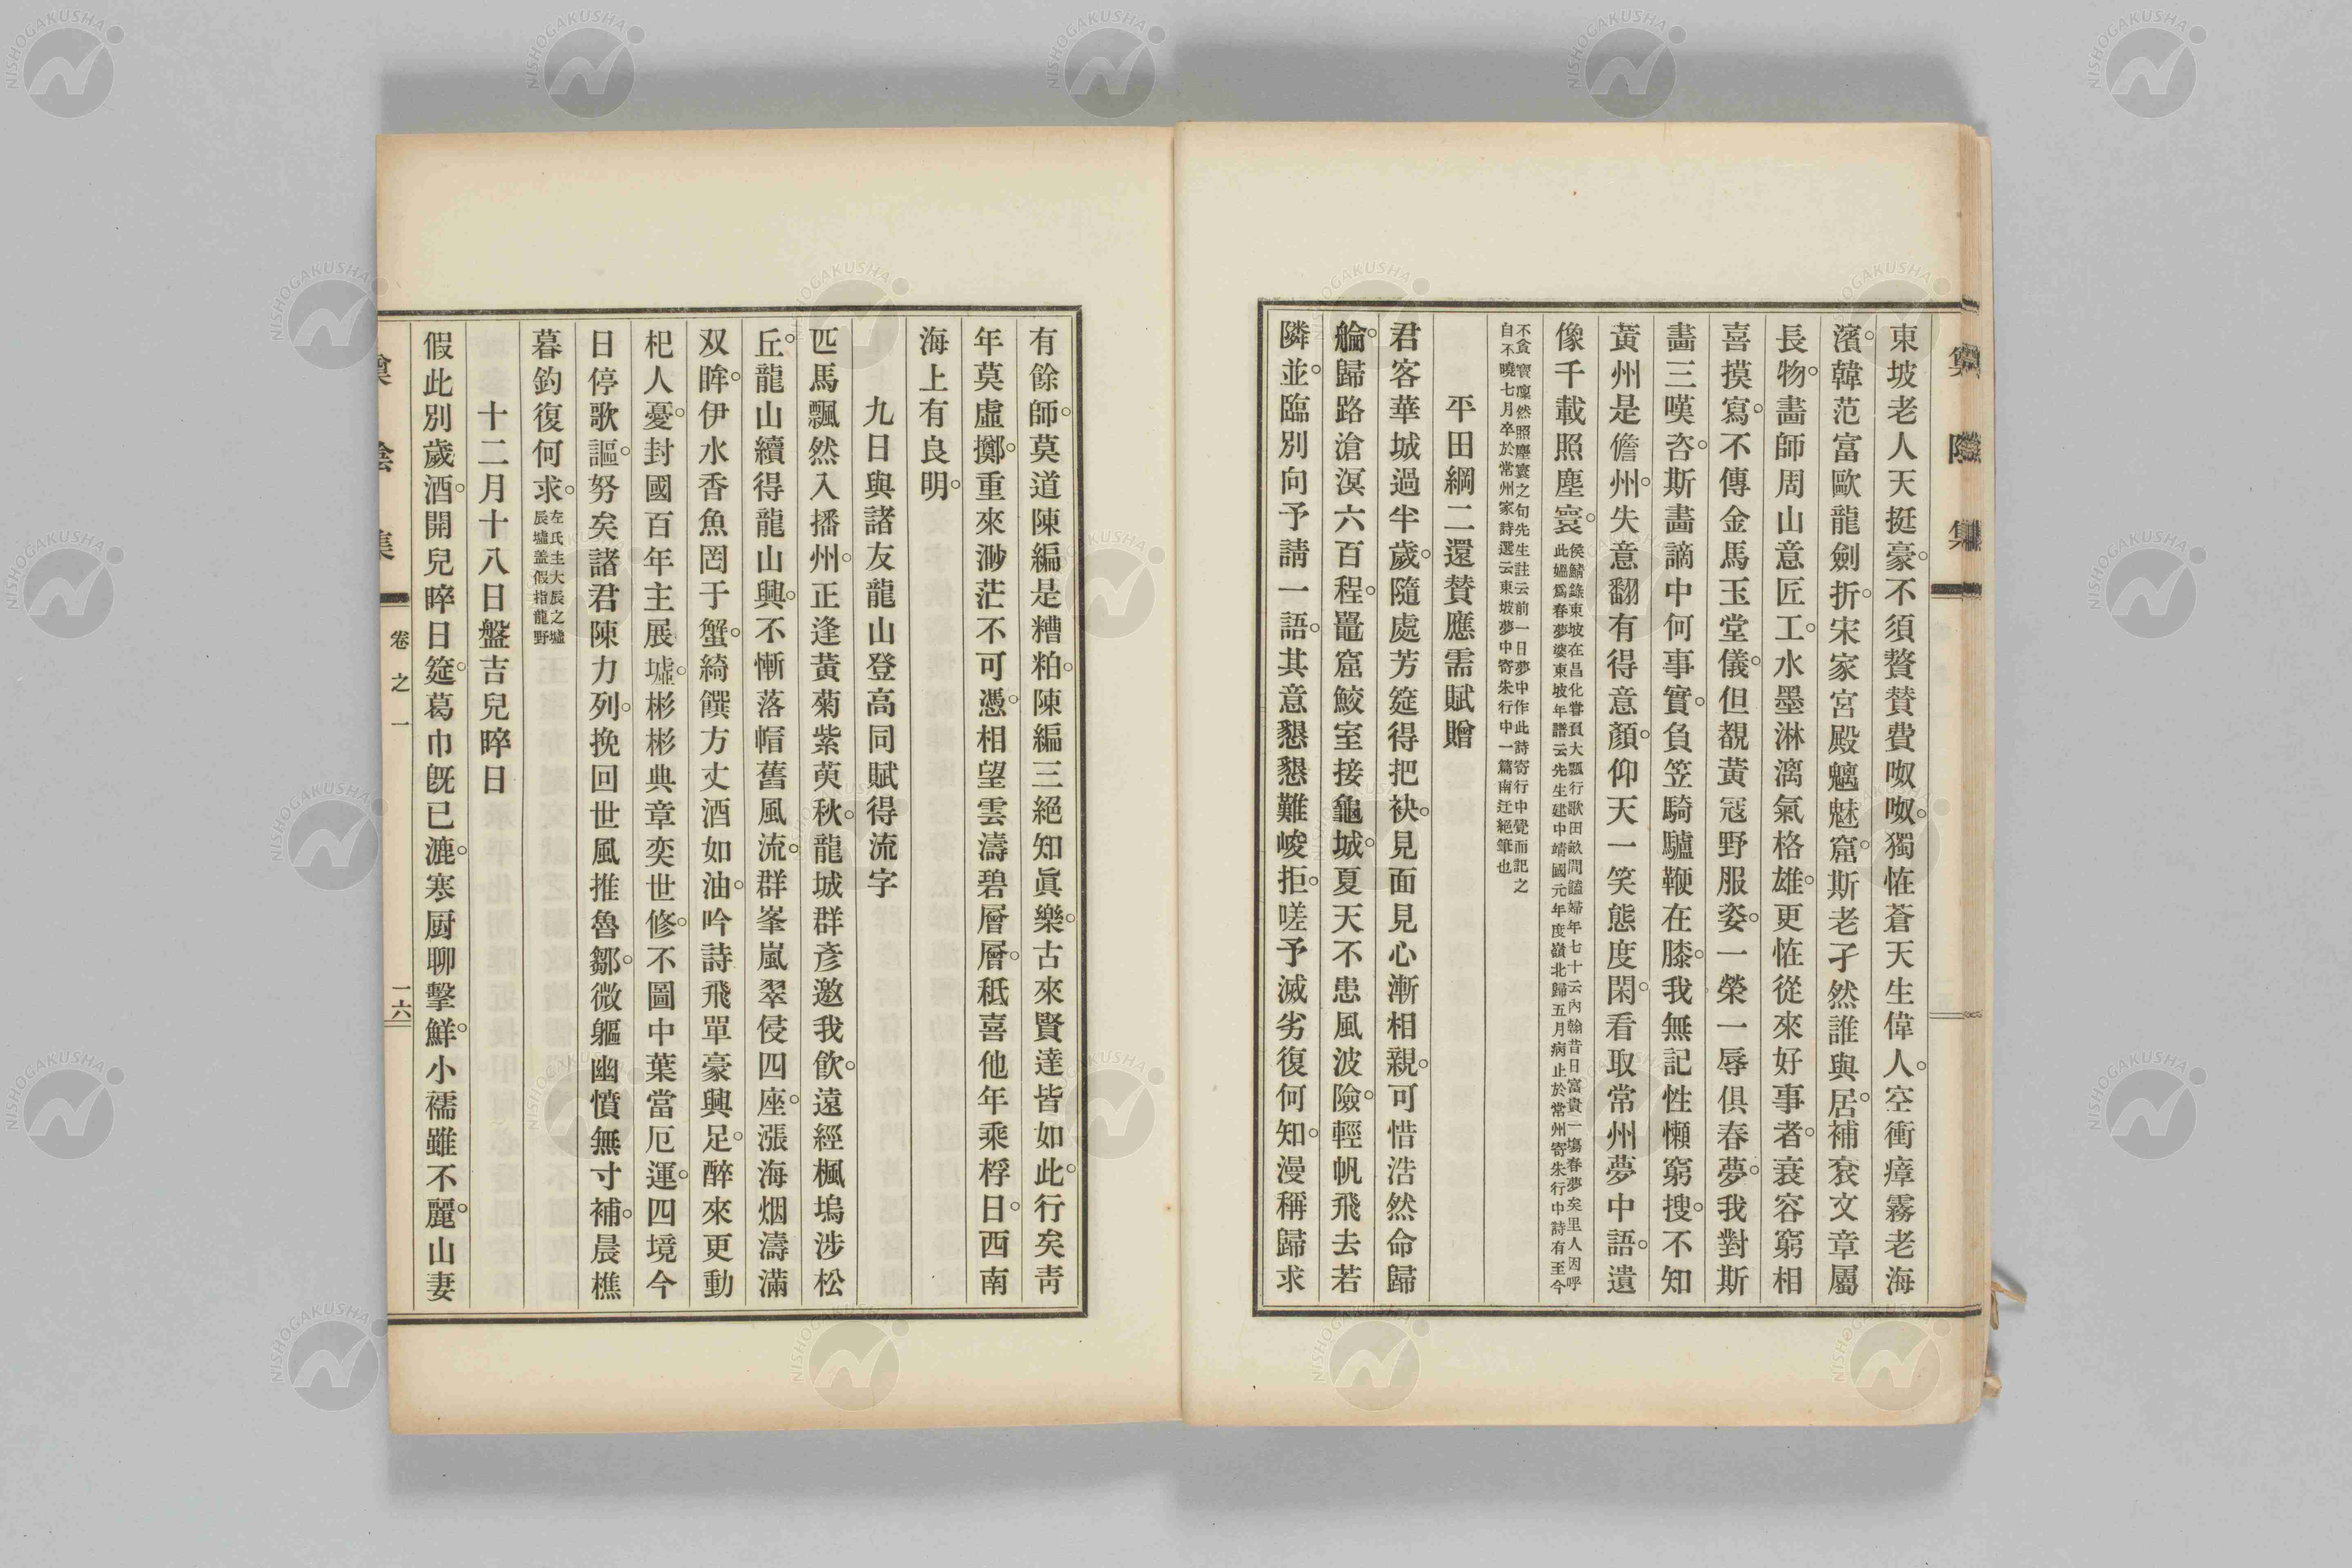 東坡老人天挺豪。不須贅贊費呶呶。獨恠蒼天生偉人。空衝瘴霧老海
濱。韓范富歐龍劍折。宋家宮殿魑魅窟。斯老孑然誰與居。補衮文章屬
長物。畵師周山意匠工。水墨淋漓氣格雄。更恠從來好事者。衰容窮相
喜摸寫。不傳金馬玉堂儀。但覩黃冦野服姿。一榮一辱俱春夢。我對斯
畵三嘆咨。斯畵謫中何事實。負笠騎驢鞭在膝。我無記性懶窮搜。不知
黃州是儋州。失意翻有得意顏。仰天一笑態度閑。看取常州夢中語。遺
像千載照塵寰。
侯鯖錄東坡在昌化甞負大瓢行歌田畝間饁婦年七十云內翰昔日富貴一塲春夢矣里人因呼
此媼爲春夢婆東坡年譜云先生建中靖國元年度嶺北歸五月病止於常州寄朱行中詩有至今
不貪寳凜然照塵寰之句先生註云前一日夢中作此詩寄行中覺而記之
自不曉七月卒於常州家詩選云東坡夢中寄朱行中一篇南迂絕筆也
平田綱二還贊應需賦贈
君客華城過半歲。隨處芳筵得把袂。見面見心漸相親。可惜浩然命歸
艙。歸路滄溟六百程。鼉窟鮫室接龜城。夏天不患風波險。輕帆飛去若
隣並。臨別向予請一語。其意懇懇難峻拒。嗟予滅劣復何知。漫稱歸求
有餘師。莫道陳編是糟粕。陳編三絕知眞樂。古來賢達皆如此。行矣靑
年莫虛擲。重來渺茫不可憑。相望雲濤碧層層。秖喜他年乘桴日。西南
海上有良明。
九日與諸友龍山登高同賦得流字
匹馬飄然入播州。正逢黃菊紫萸秋。龍城群彥邀我飮。遠經楓塢涉松
丘。龍山續得龍山興。不慚落帽舊風流。群峯嵐翠侵四座。漲海烟濤滿
双眸。伊水香魚罔于蟹。綺饌方丈酒如油。吟詩飛單豪興足。醉來更動
杞人憂。封國百年主展墟。彬彬典章奕世修。不圖中葉當厄運。四境今
日停歌謳。努矣諸君陳力列。挽回世風推魯鄒。微軀幽憤無寸補。晨樵
暮釣復何求。
左氏主大辰之墟
辰墟盖假指龍野
十二月十八日盤吉兒晬日
假此別歲酒。開兒晬日筵。葛巾旣已漉。寒厨聊擊鮮。小襦雖不麗。山妻
卷之一
一六